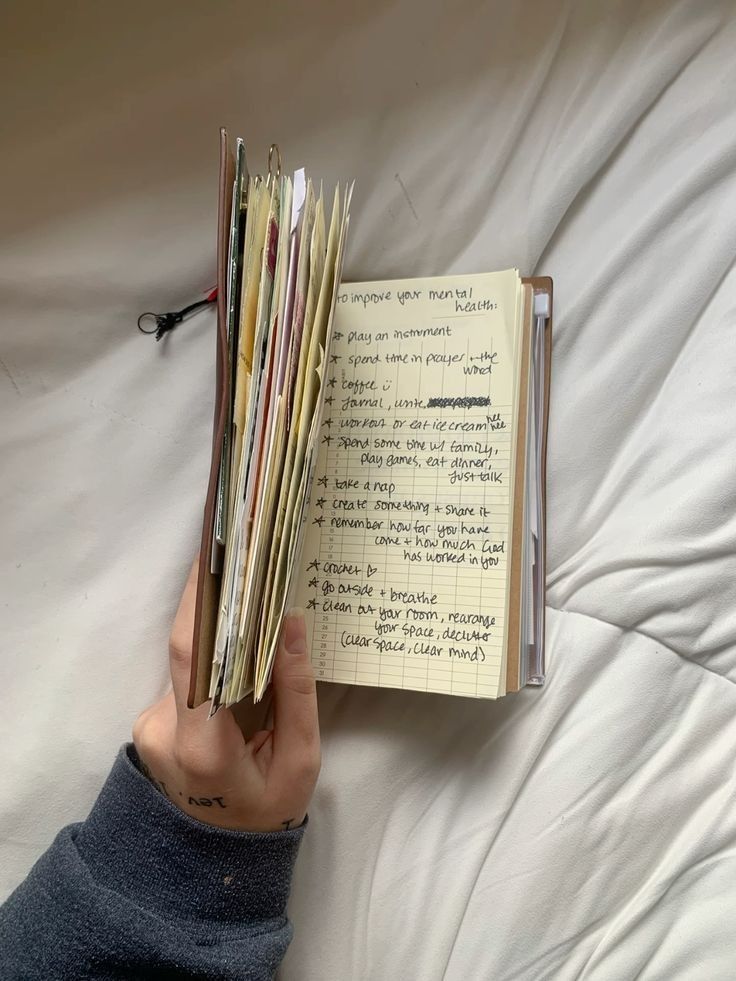 to improve your mental
health:
* play an instrument
* spend time in prayer + the
word
* coffee ü
* journal, write
* workout or eat icecream hee
hee
* spend some time w/ family,
play games, eat dinner,
just talk
* take a nap
* create something + share it
* remember how far you have
come + how much God
has worked in you
* crochet ♡
* go outside + breathe
* clean out your room, rearange
your space, declutter
(clear space, clear mind)